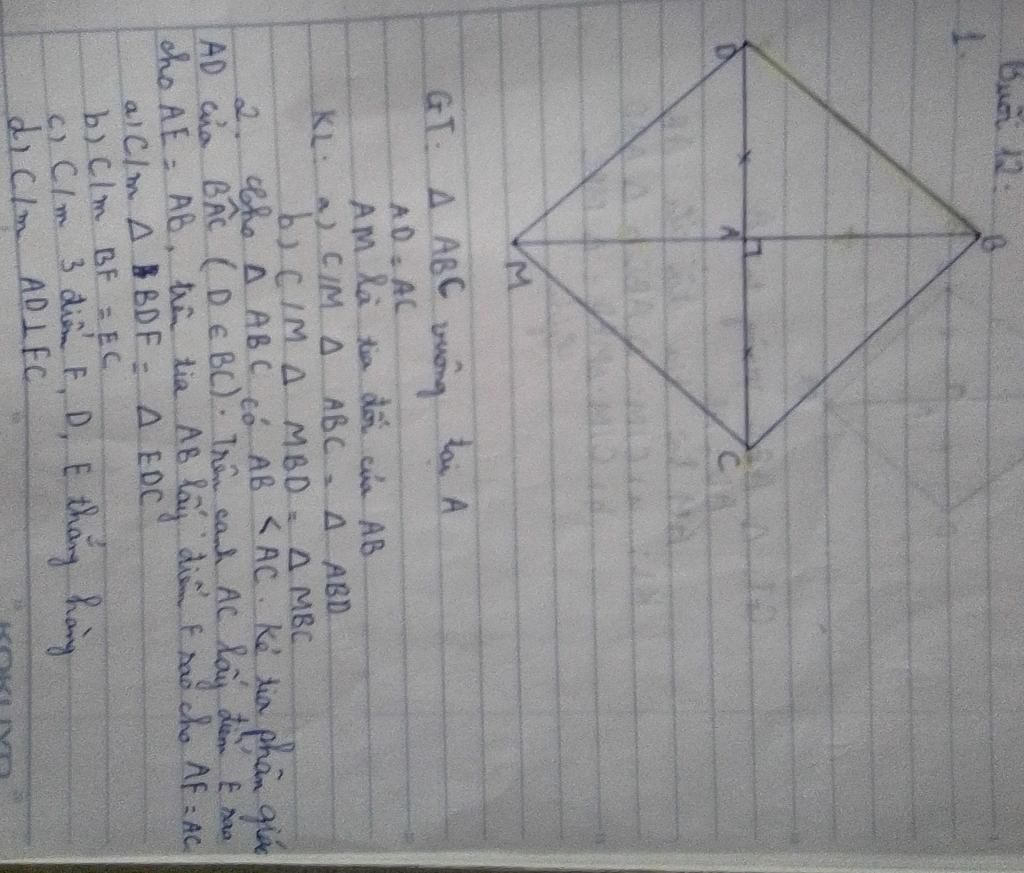 Buổi 12:
1.
B
D
A
C
M
GT: Δ ABC vuông tại A
AD = AC
AM là tia đối của AB
KL: a) C/M Δ ABC = Δ ABD
b) C/M Δ MBD = Δ MBC
2. Cho Δ ABC có AB < AC. Kẻ tia phân giác
AD của BÂC (D ∈ BC). Trên cạnh AC lấy điểm E sao
cho AE = AB, trên tia AB lấy điểm F sao cho AF = AC
a) C/m Δ BDF = Δ EDC
b) C/m BF = EC
c) C/m 3 điểm F, D, E thẳng hàng
d) C/m AD ⊥ FC
KOKUYO